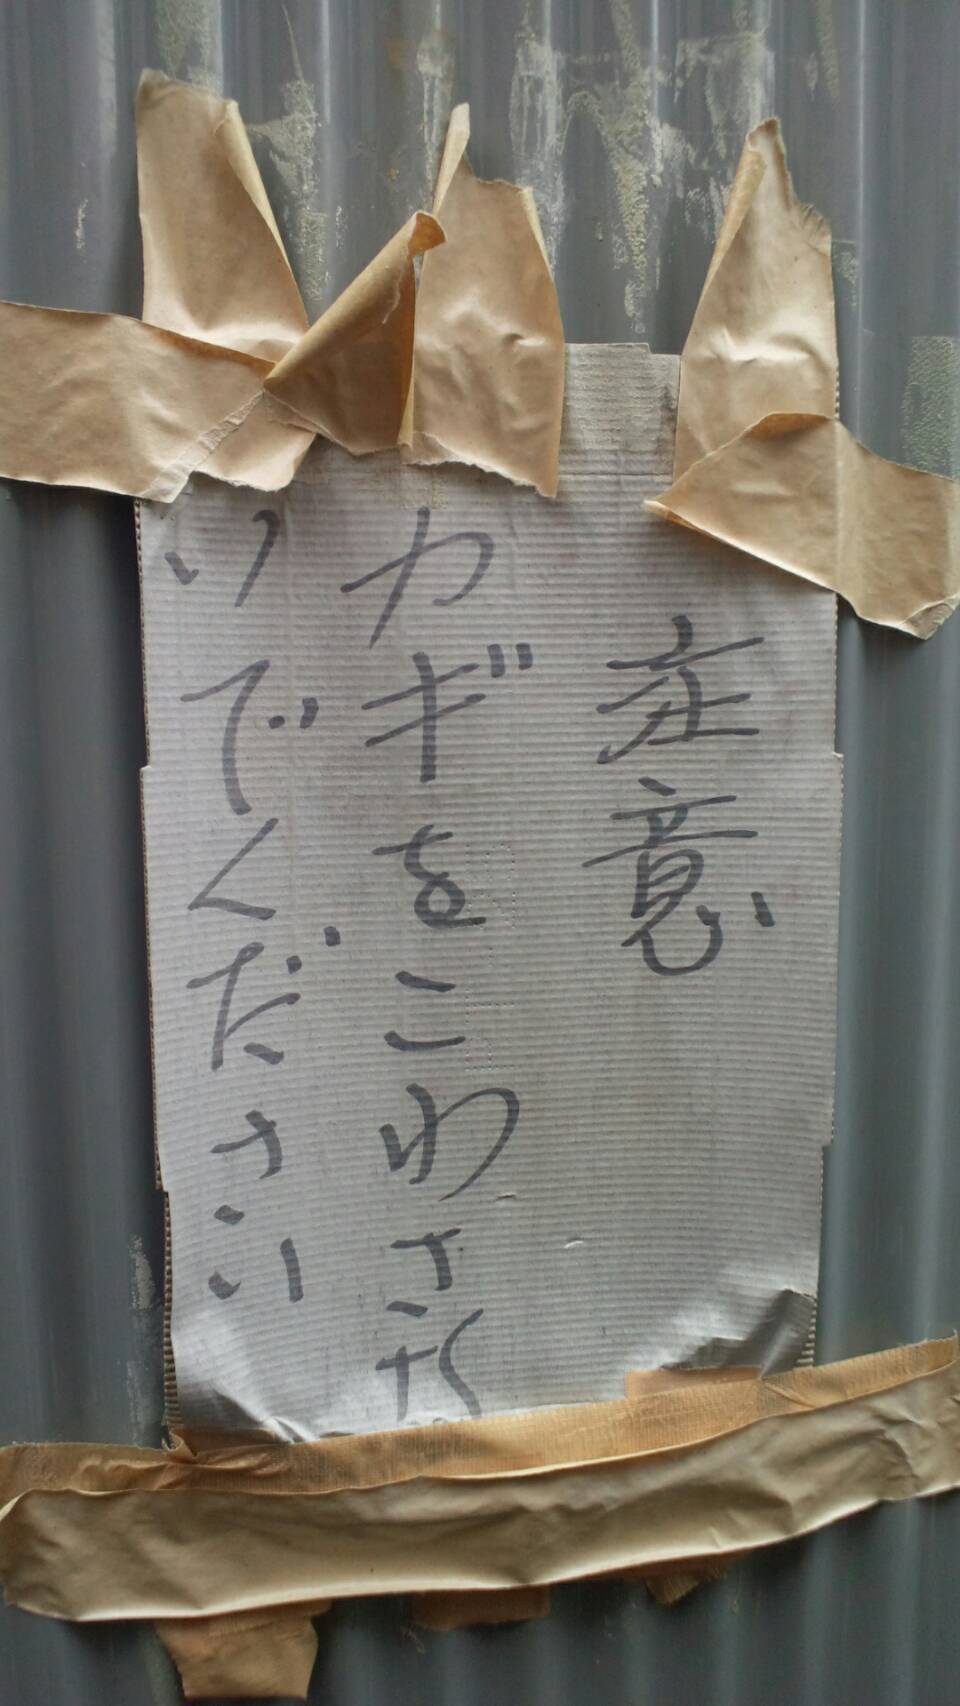 庄意
カギをこわさな
いでください